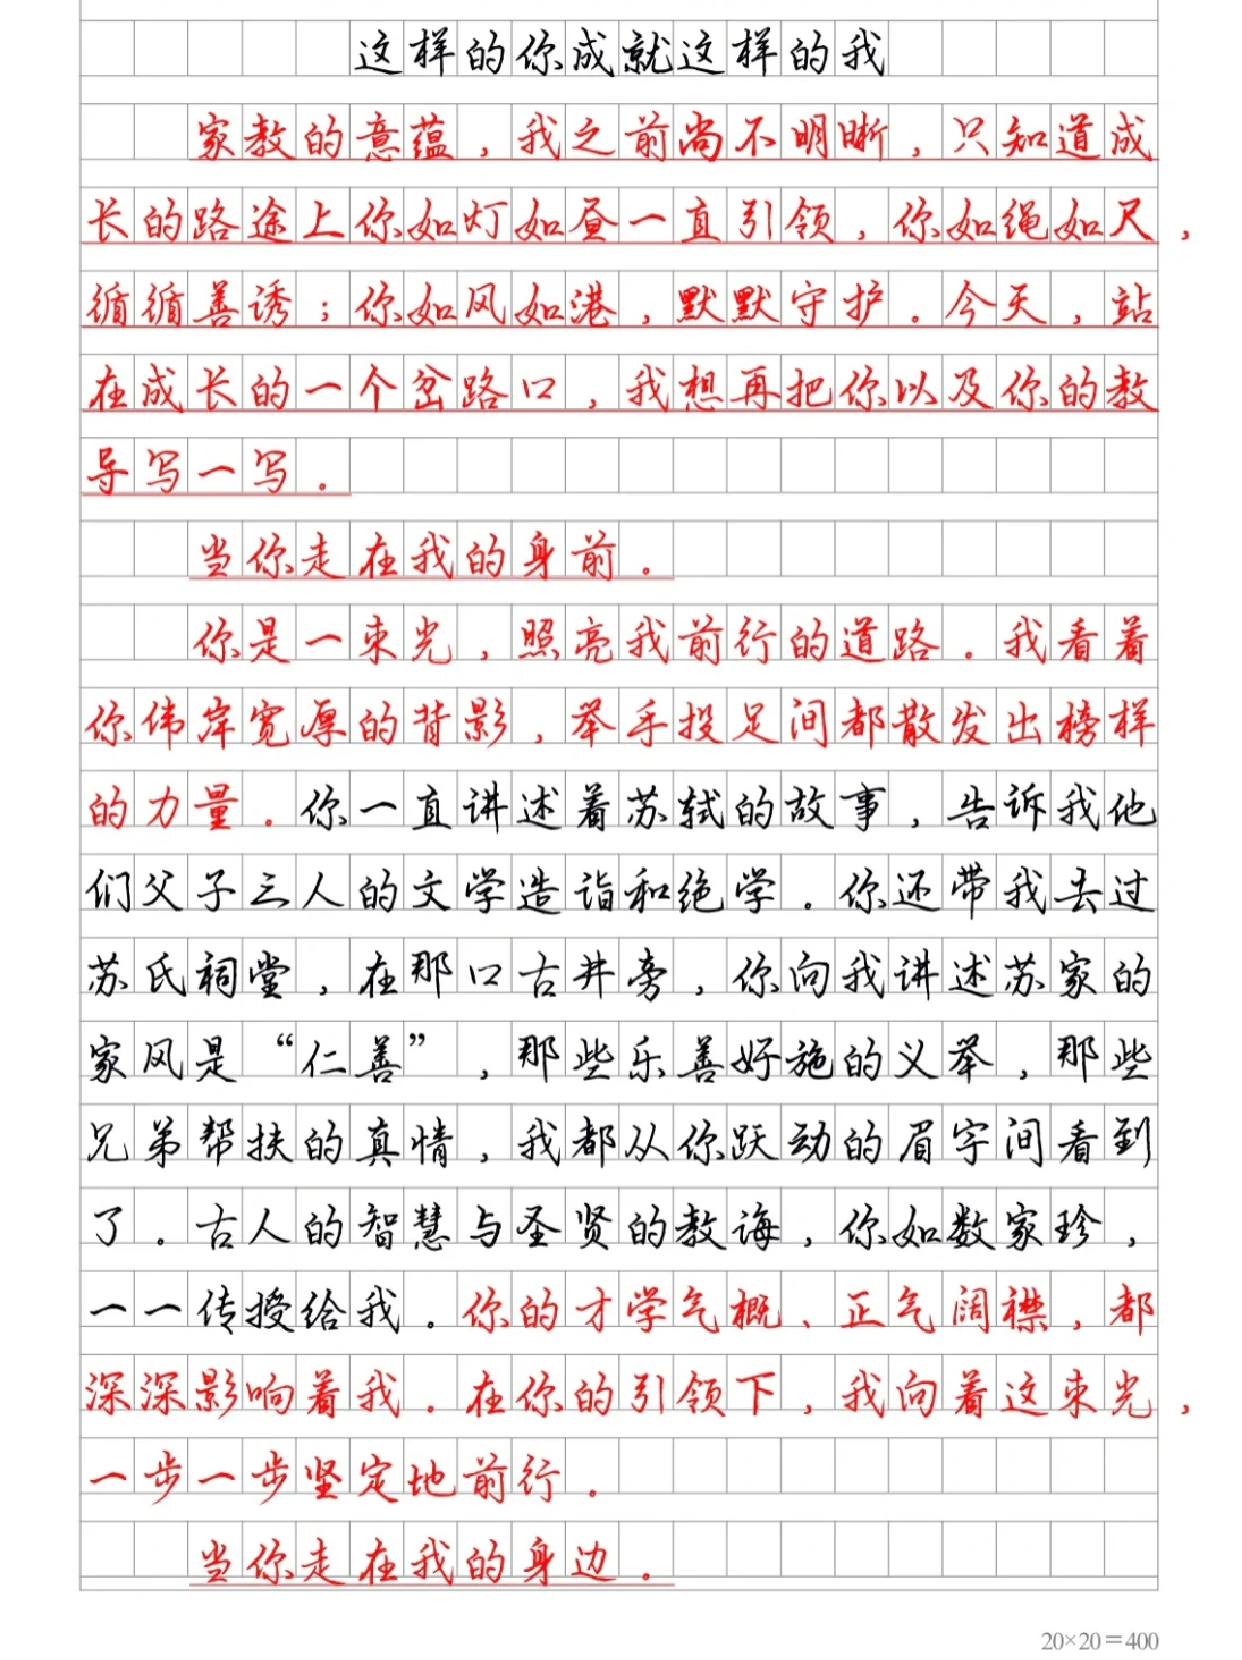 这样的你成就这样的我
家教的意蕴，我之前尚不明晰，只知道成
长的路途上你如灯如昼一直引领，你如绳如尺，
循循善诱；你如风如港，默默守护。今天，站
在成长的一个岔路口，我想再把你以及你的教
导写一写。
当你走在我的身前。
你是一束光，照亮我前行的道路。我看着
你伟岸宽厚的背影，举手投足间都散发出榜样
的力量。你一直讲述着苏轼的故事，告诉我他
们父子三人的文学造诣和绝学。你还带我去过
苏氏祠堂，在那口古井旁，你向我讲述苏家的
家风是“仁善”，那些乐善好施的义举，那些
兄弟帮扶的真情，我都从你跃动的眉宇间看到
了。古人的智慧与圣贤的教诲，你如数家珍，
一一传授给我。你的才学气概、正气阔襟，都
深深影响着我。在你的引领下，我向着这束光，
一步一步坚定地前行。
当你走在我的身边。
20×20＝400